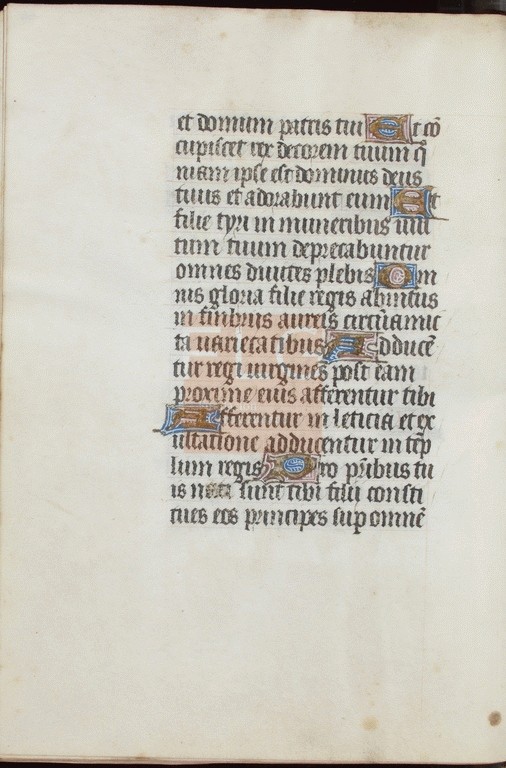 et domum patris tui Et cō
cupiscet rex decorem tuum q̄
niam ipse est dominus deus
tuus et adorabunt eum Et
filie tyri in muneribus vul
tum tuum deprecabuntur
omnes divites plebis Om
nis gloria filie regis abintus
in fimbriis aureis circūamic
ta varietatibus Adducē
tur regi virgines post eam
proxime eius afferentur tibi
Afferentur in leticia et ex
ultatione adducentur in tēp
lum regis Pro pr̄ibus tu
is nati sunt tibi filii consti
tues eos principes sup omnē